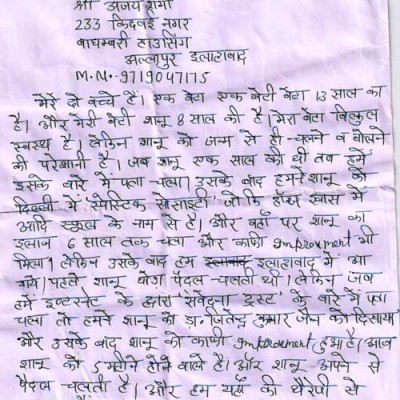 श्री अजय शर्मा
233 किदवई नगर
बाघम्बरी हाउसिंग
अल्लापुर इलाहाबाद
M.N.-9719047175
मेरे दो बच्चे है। एक बेटा एक बेटी बेटा 13 साल का
है। और मेरी बेटी शानू 8 साल की है। मेरा बेटा बिल्कुल
स्वस्थ है। लेकिन शानू को जन्म से ही चलने व बोलने
की परेशानी है। जब शानू एक साल की थी तब हमें
इसके बारे में पता चला। उसके बाद हमने शानू को
दिल्ली में 'स्पेस्टिक सोसाइटी' जो कि हौज खास में
आदि स्कूल के नाम से है। और वहाँ पर शानू का
इलाज 6 साल तक चला और काफी Improvment भी
मिला। लेकिन उसके बाद हम इलाहाबाद में आ
गये। पहले शानू थोड़ा पैदल चलती थी। लेकिन जब
हमें इण्टरनेट के द्वारा 'संवेदना ट्रस्ट' के बारे में पता
चला तो हमने शानू को डा. जितेन्द्र कुमार जैन को दिखाया
और उसके बाद शानू को काफी Improvement हुआ है। आज
शानू को 5 महीने होने वाले है। और शानू अपने से
पैदल चलती है। और हम यहाँ की थैरेपी से